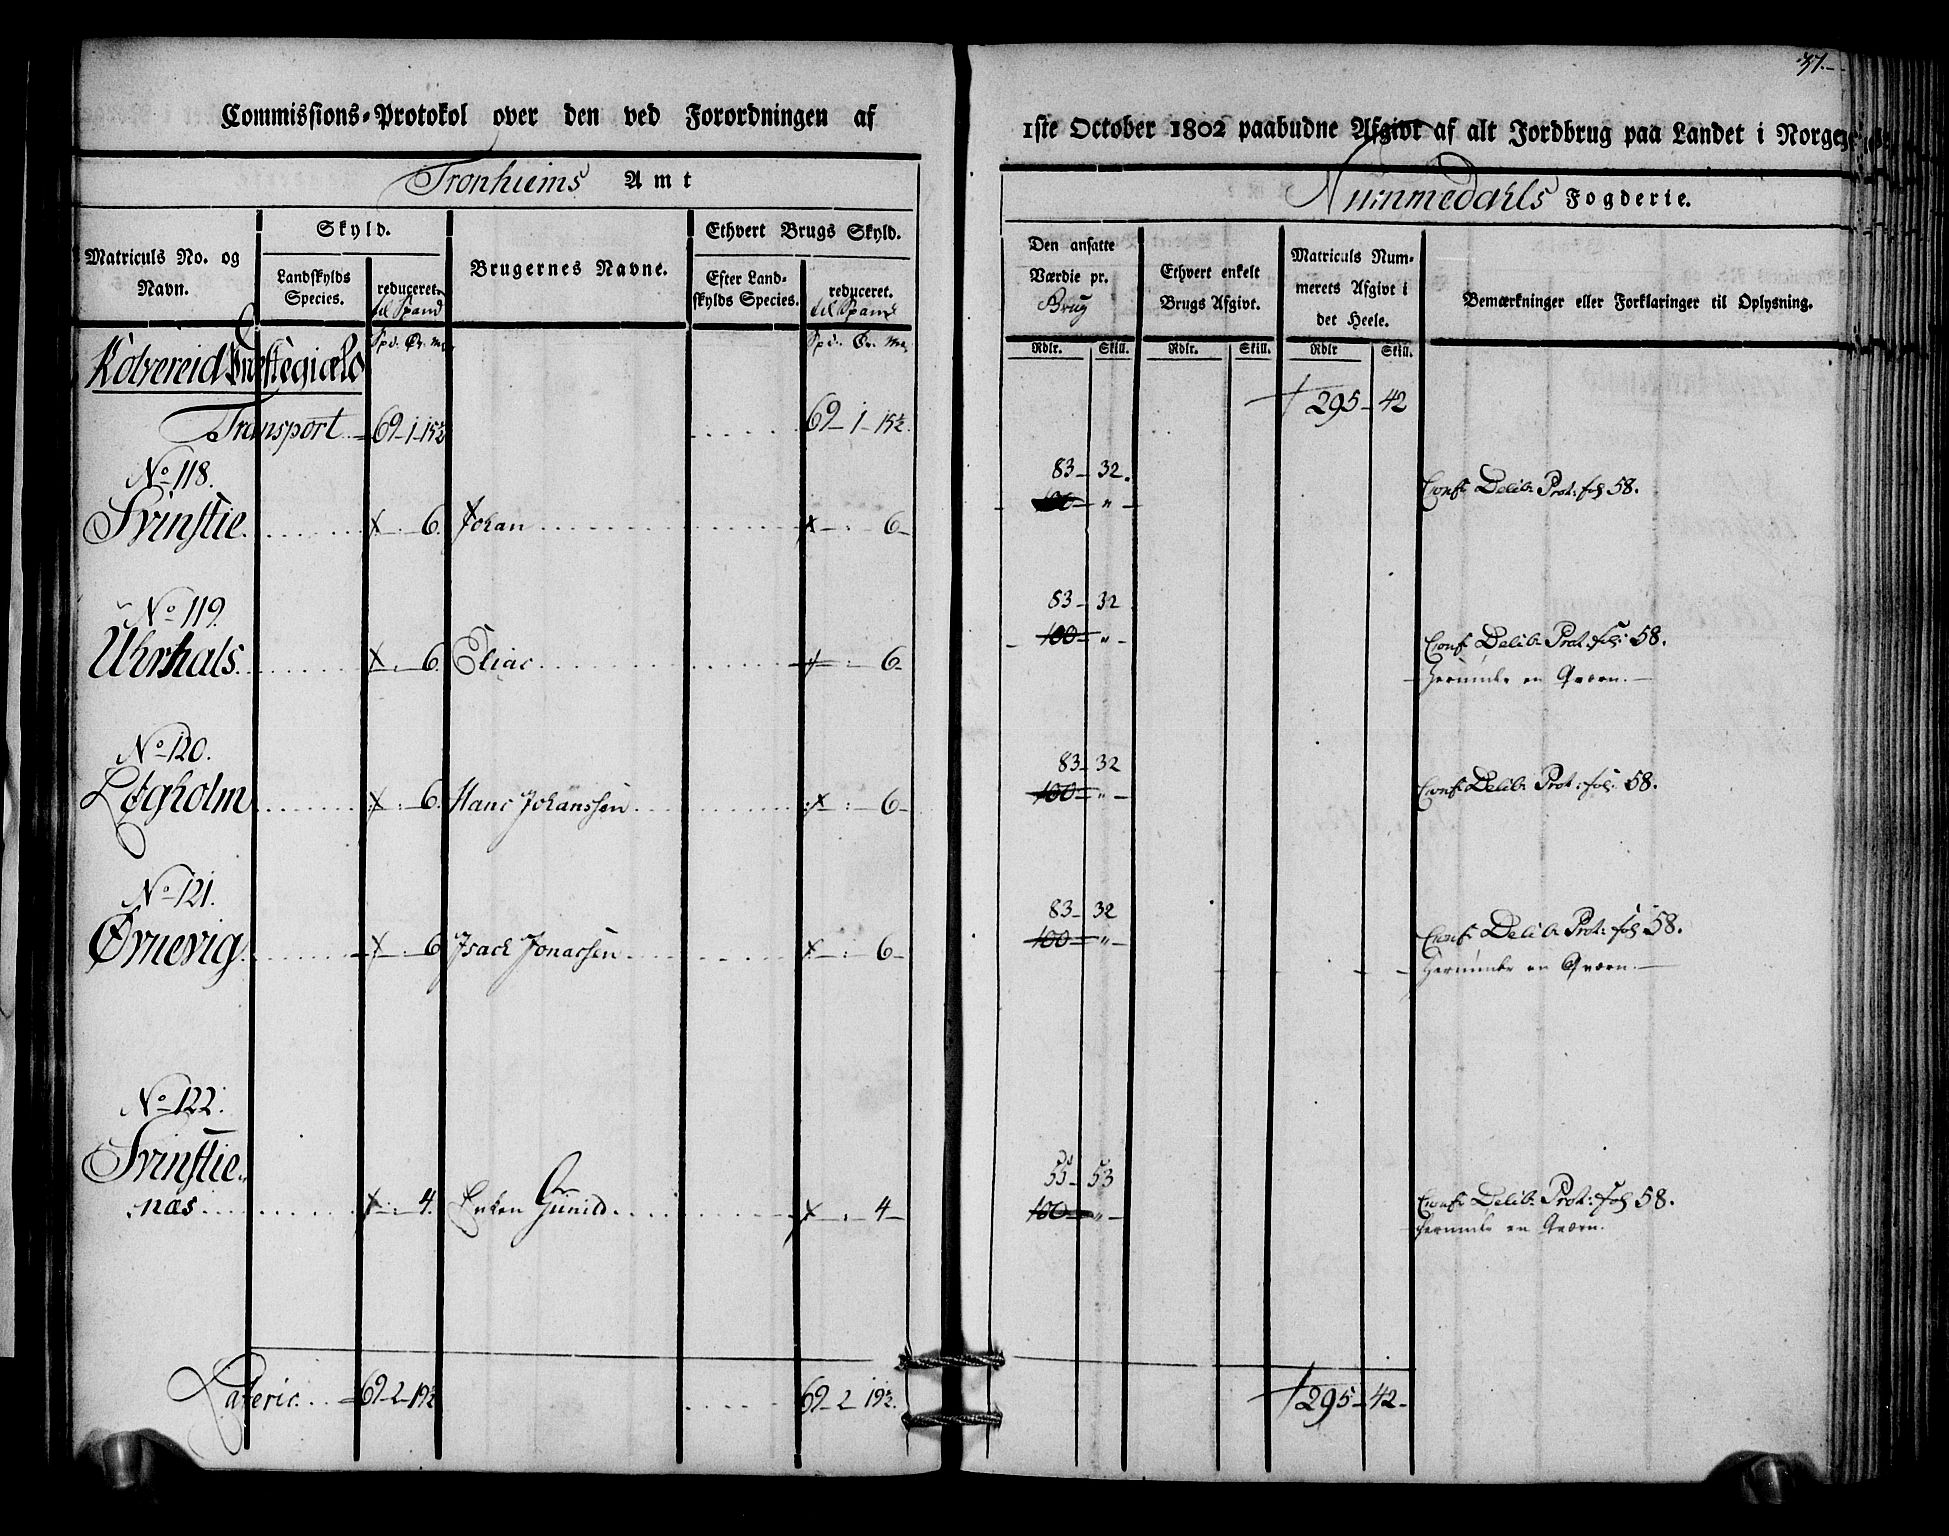 37.
Commissions-Protokol over den ved Forordningen af 1ste October 1802 paabudne Afgivt af alt Jordbrug paa Landet i Norge
Tronhiems Amt
Nummedahls Fogderie.
Matriculs No. og Navn.
Skyld.
Landskylds Species.
reduceret til Spand
Brugernes Navne.
Ethvert Brugs Skyld.
Efter Landskylds Species.
reduceret. til Spand
Den ansatte Værdie pr. Brug
Ethvert enkelt Brugs Afgivt.
Matriculs Nummerets Afgivt i det Heele.
Bemærkninger eller Forklaringer til Oplysning.
Spd. Ør. Ma. Spd. Ør. Ma. Rdlr. Skill. Rdlr. Skill. Rdlr Skill.
Kolvereid Præstegield
Transport 69-1-15½ 69-1-15½. 295-42
No 118. 83-32.
Svinstie 6. Johan 6- 100 " - Conf: Delib: Prot: fol 58.
No 119. 83-32
Uhrhals. 6. Elias 6- 100 " - Conf: Delib: Prot: fol: 58.
Herunder en Qværn.
No 120. 83-32
Løgholm 6. Hans Johanssen 6- 100 " - Conf: Delib: Prot: fol: 58.
No 121. 83-32
Ørnevig 6 Isach Jonassen 6- 100 " - Conf: Delib: Prot: fol 58.
Herunder en Qværn.
No 122. 55-53
Svinstienæs 4. Enken Gunild 4- 100 " - Conf: Delib: Prot: fol 58.
herunder en Qværn.
Lateris 69-2-19½ 69-2-19½. 295-42-